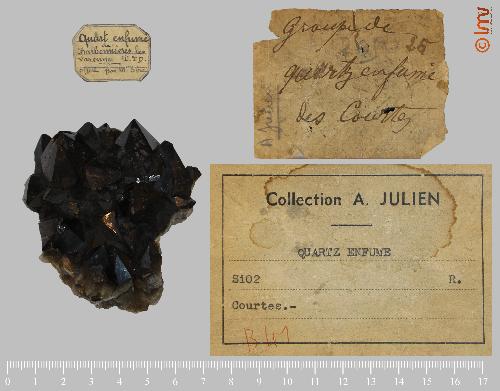 Quart enfumé
de
Charbonnières les
Varennes
Groupe de
quartz enfumé
des Courtes
A Julien
Collection A. JULIEN
QUARTZ ENFUME
SiO2 R.
Courtes.-
lmv
0 1 2 3 4 5 6 7 8 9 10 11 12 13 14 15 16 17